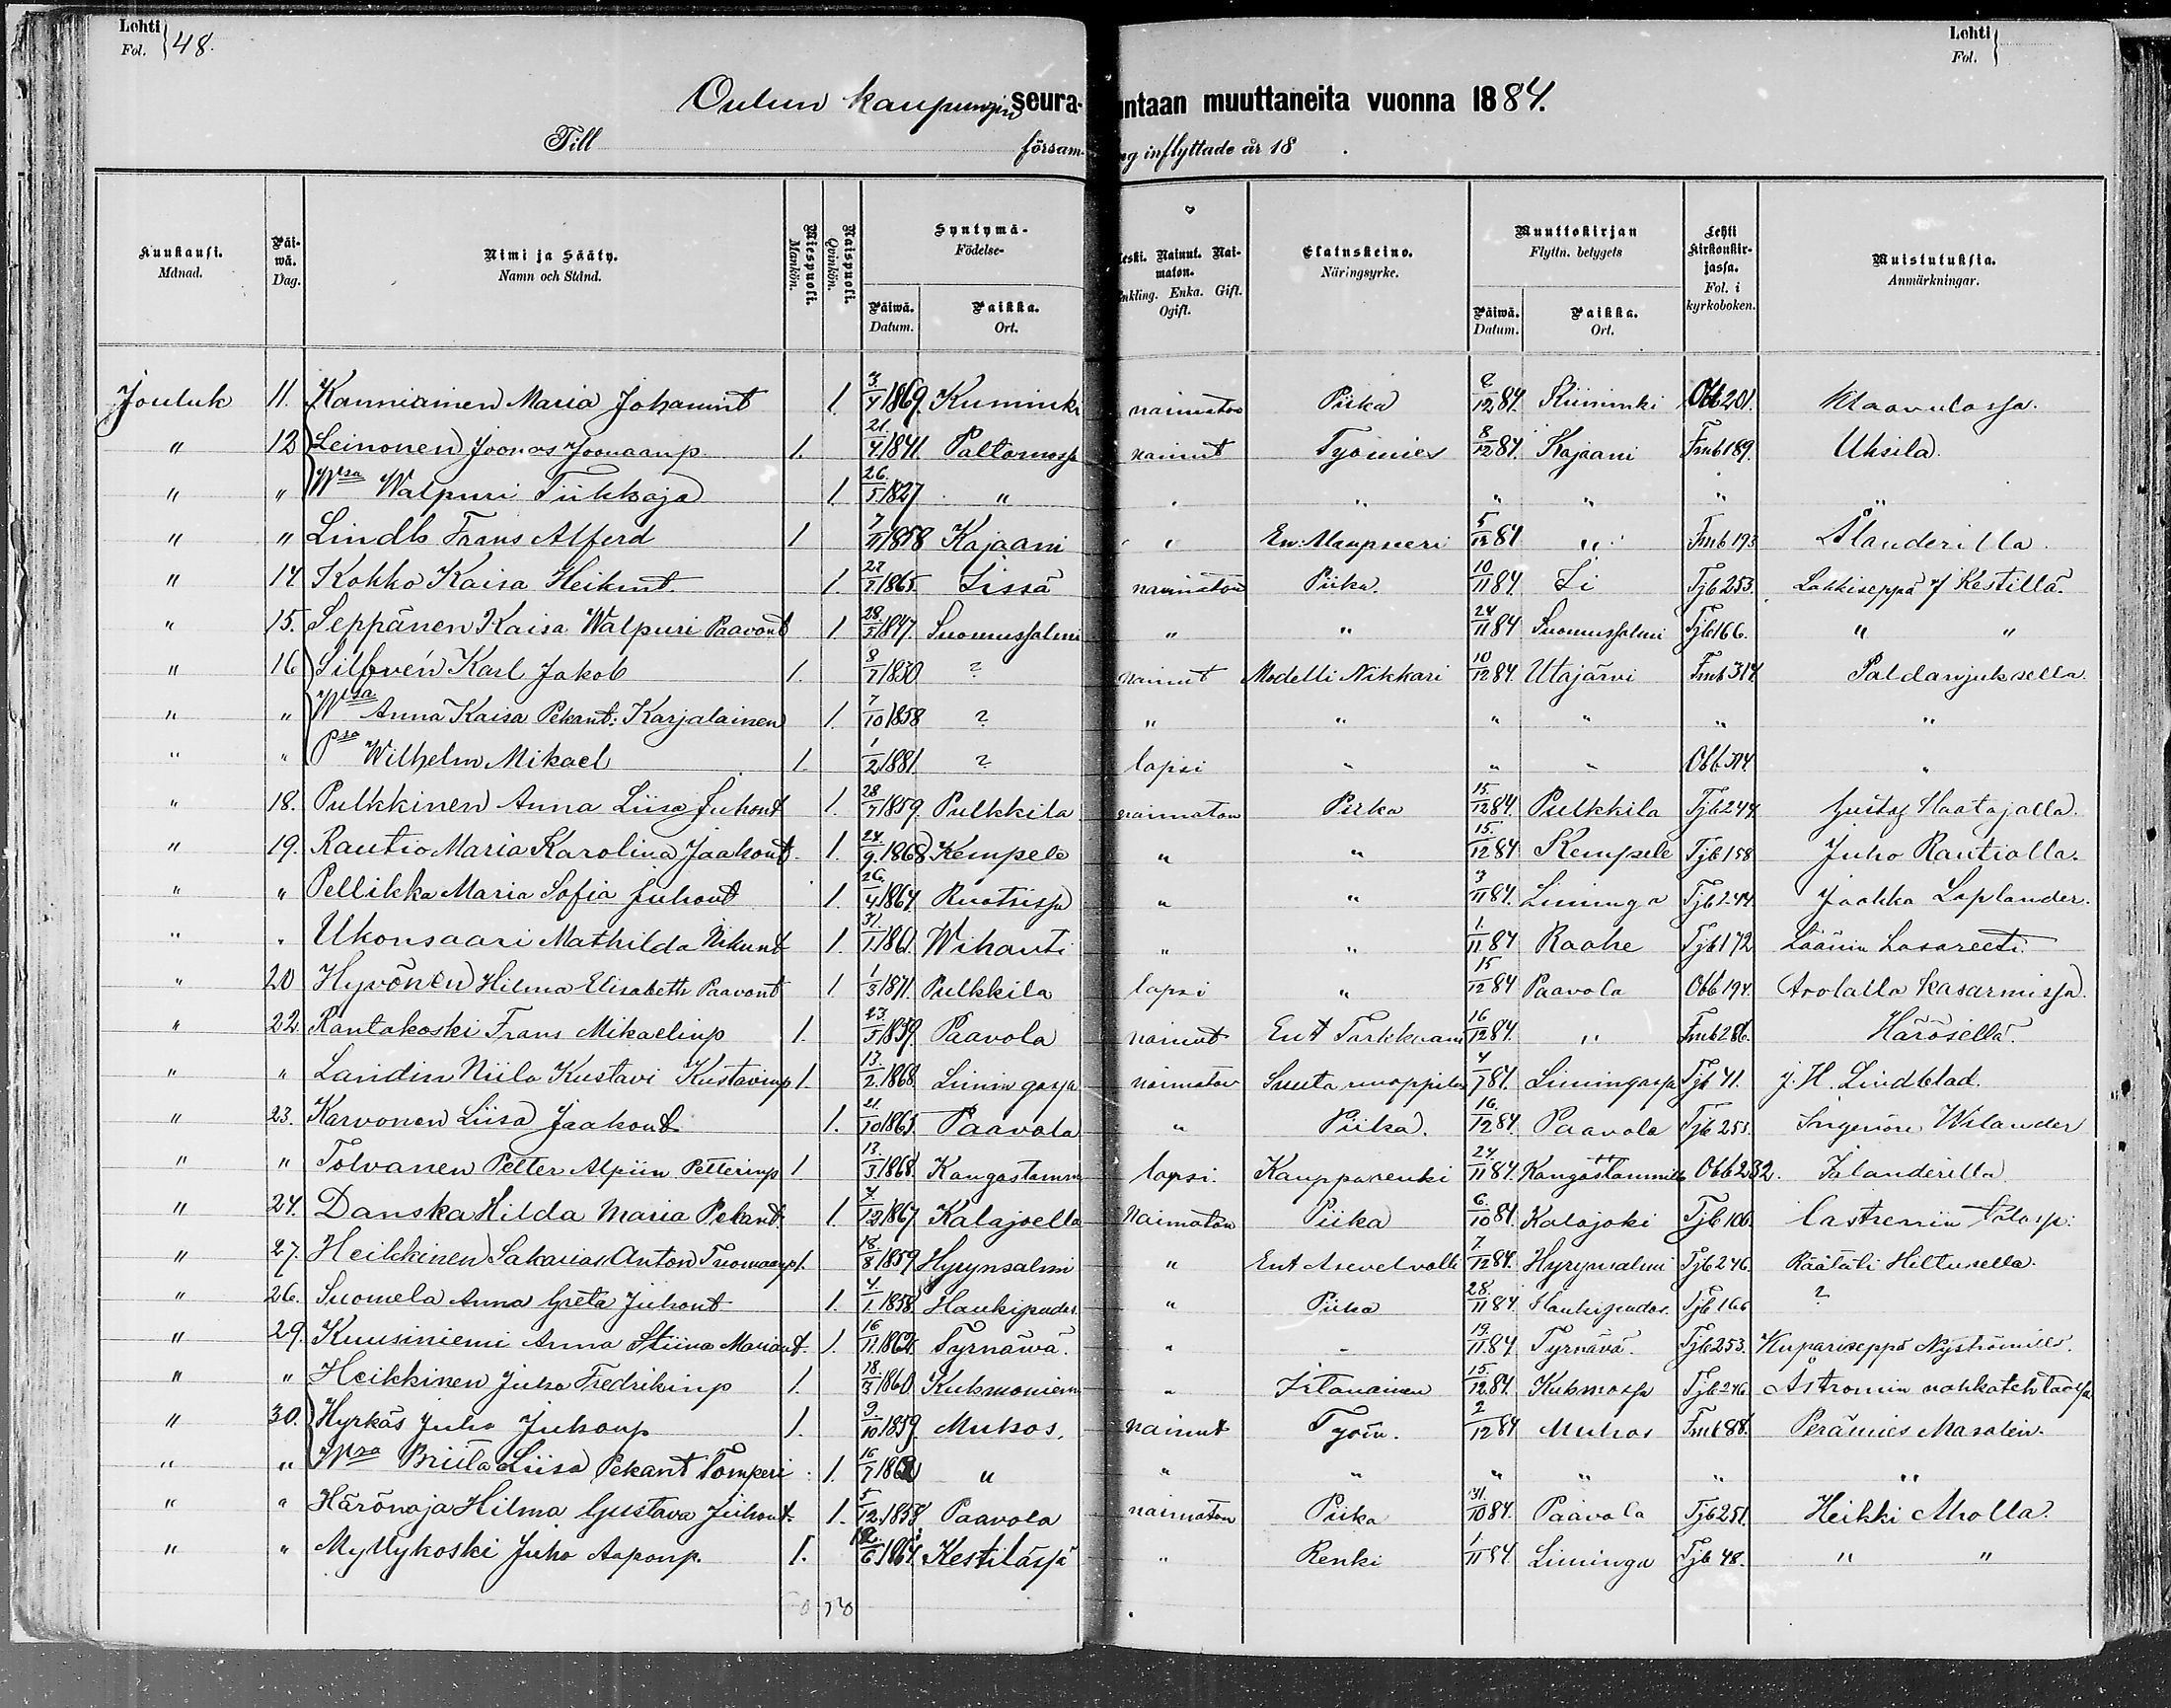 Lehti
Fol. } 48.
Lehti
Fol. }
Oulun kaupungin seura- untaan muuttaneita vuonna 1884.
Till församling inflyttade år 18 .
Kuukausi. Månad. | Päiwä. Dag. | Nimi ja Sääty. Namn och Stånd. | Miespuoli. Mankön. | Naispuoli. Qvinkön. | Syntymä- Födelse- Päiwä. Datum. | Paikka. Ort. | Leski. Nainut. Naimaton. Enkling. Enka. Gift. Ogift. | Elatuskeino. Näringsyrke. | Muuttokirjan Flyttn. betygets Päiwä. Datum. | Paikka. Ort. | Lehti Kirkonkirjassa. Fol. i kyrkoboken. | Muistutuksia. Anmärkningar.
Jouluk 11. Kanniainen Maria Johannnt 1. 3/4 1869. Kiminki naimaton Piika 2/12 84. Kiiminki Obb 201. Maavulassa.
" 12 Leinonen Joonas Joonaanp. 1. 21/4 1841. Paltamossa nainut Työmies 8/12 84. Kajaani Fmb 189. Uhsila.
" " Wsa Walpuri Tiikkaja 1 26/5 1827 " " " " " " "
" " Lindh Frans Alferd 1 7/11 1858 Kajaani " En: Maapueri 5/12 84 " Fmb 193 Ålanderilla.
" 14 Kokko Kaisa Heikint. 1. 27/7 1865. Iissä naimaton Piika. 10/11 84. Ii Tjb 253. Lakkiseppä Kestillä.
" 15. Seppänen Kaisa Walpuri Paavont 1 28/5 1847. Suomussalmi " " 24/11 84 Suomussalmi Tjb 166. " "
" 16 Silfvén Karl Jakob 1. 8/7 1830 ? nainut Modelli Nikkari 10/12 84. Utajärvi Fmb 314 Paldanjuksella.
" " Wsa Anna Kaisa Pekant: Karjalainen 1. 7/10 1858 ? " " " " " "
" " Psa Wilhelm Mikael 1. 1/2 1881. ? lapsi " " " Obb. 314 "
" 18. Pulkkinen Anna Liisa Juhont 1. 28/7 1859. Pulkkila naimaton Piika 15/12 84. Pulkkila Tjb 244 Gustaf Haatajalla.
" 19. Rautio Maria Karolina Jaakont. 1. 24/9 1868 Kempele " " 15/12 84 Kempele Tjb 158 Juho Rautiolla.
" " Pellikka Maria Sofia Juhont 1. 26/4 1864. Ruotsissa " " 3/11 84. Liminga Tjb 244 Jaakko Laplander.
" " Ukonsaari Mathilda Nikunt 1. 31/1 1861. Wihanti " " 1/11 84 Raahe Tjb 172 Läänin Lasareeti.
" 20 Hyvönen Hilma Elisabeth Paavont 1 1/3 1871. Pulkkila lapsi " 15/12 84 Paavola Obb 194. Arolalla kasarmissa.
" 22. Rantakoski Frans Mikaelinp 1. 23/5 1859. Paavola nainut Ent Tarkkuam 16/12 84. " Fmb 286. Härösellä.
" " Landin Niilo Kustavi Kustavinp 1. 17/2 1868. Limingassa naimaton Suuta rinoppilas 4/7 84. Limingassa Tjb 41. J. H. Lindblad.
" 23. Karvonen Liisa Jaakont 1. 21/10 1865. Paavola " Piika. 16/12 84. Paavola Tjb 253. Ingeniöri Wilander
" " Tolvanen Petter Alpiin Petterinp 1 13/3 1868. Kangaslammi lapsi. Kaupparenki 24/11 84. Kangaslammilla Obb 232. Ialanderilla
" 24. Danska Hilda Maria Pekant. 1. 4/12 1867 Kalajoella Naimaton Piika 6/10 84. Kalajoki Tjb 106. Castrenin talossa:
" 27. Heikkinen Sakarias Anton Tuomaanp 1. 18/8 1859 Hyrynsalmi " Ent Asevelvolli 7/12 84. Hyrynsalmi Tjb 246. Räätäli Hiltusella.
" 26. Suomela Anna Greta Juhont 1. 4/1 1858. Haukipudas. " Piika 28/11 84. Haukipudas. Tjb 166 ?
" 29. Kuusiniemi Anna Stiina Mariant. 1. 16/11 1862. Tyrnäwä. " " 19/11 84 Tyrnävä. Tjb 253. Kupariseppä Nyströmillä.
" " Heikkinen Juho Fredrikinp 1. 18/3 1860. Kuhmoniem " Irtanainen 15/12 84. Kuhmossa Tjb 246 Åströmin nahkatehtaassa
" 30. Hyrkäs Juho Juhonp 1. 9/10 1859. Muhos. nainut Työm. 2/12 84 Muhos Fmb 88. Perämies Masalin.
" " Wsa Briita Liisa Pekant Tomperi 1. 16/7 186 " " " " " " "
" " Härönoja Hilma Gustava Juhont. 1. 5/12 1858 Paavola naimaton Piika 31/10 84. Paavola Tjb 251. Heikki Aholla.
" " Myllykoski Juho Aaponp. 1. 12/6 1864. Kestilässä " Renki 1/11 84. Liminga Tjb 48. " "